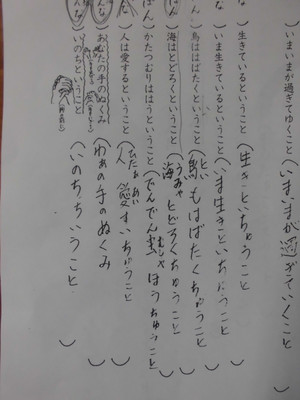 いまいまが過ぎてゆくこと（いまいまが過ぎていくこと　　）
生きているということ（生きといちゅうこと　　）
いま生きているということ（いま生きといちゅうこと　　）
鳥ははばたくということ（鳥もはばたくちゅうこと　　）
海はとどろくということ（海 とどろくちゅうこと　　）
かたつむりははうということ（でんでん はうちゅうこと　　）
人は愛するということ（人 愛すいちゅうこと　　）
あなたの手のぬくみ（わぁの手のぬくみ　　）
いのちということ（いのちちいうこと　　）